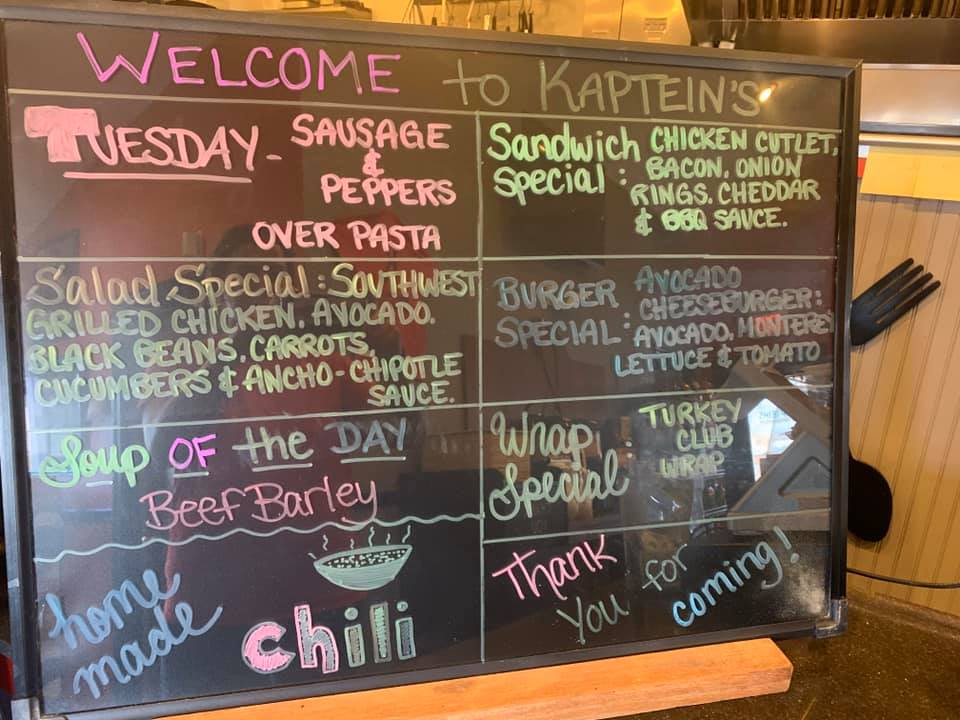 WELCOME to KAPTEIN'S
TUESDAY- SAUSAGE
&
PEPPERS
OVER PASTA
Sandwich CHICKEN CUTLET,
Special: BACON, ONION
RINGS, CHEDDAR
& BBQ SAUCE.
Salad Special: SOUTHWEST
GRILLED CHICKEN, AVOCADO,
BLACK BEANS, CARROTS,
CUCUMBERS & ANCHO-CHIPOTLE
SAUCE.
BURGER AVOCADO
SPECIAL: CHEESEBURGER:
AVOCADO, MONTEREY
LETTUCE & TOMATO
Soup OF the DAY
Beef Barley
Wrap TURKEY
Special CLUB
WRAP
home
made
chili
Thank
You for
coming!